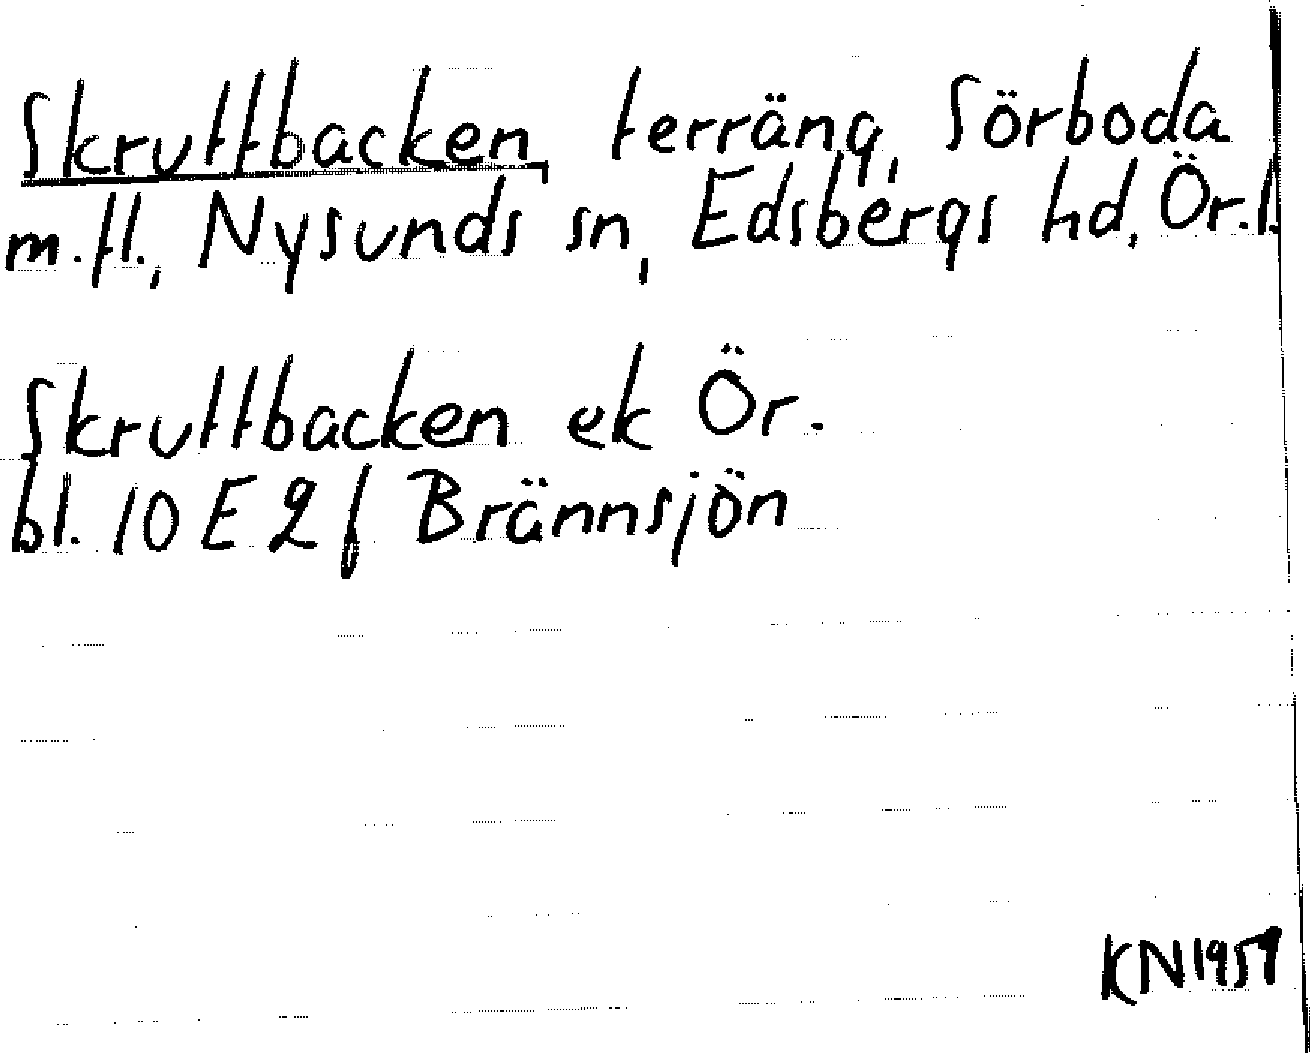 Skruttbacken, terräng, Sörboda
m.fl., Nysunds sn, Edsbergs hd, Ör.l.
Skruttbacken ek Ör.
bl. 10 E 2 f Brännsjön
KN 1957